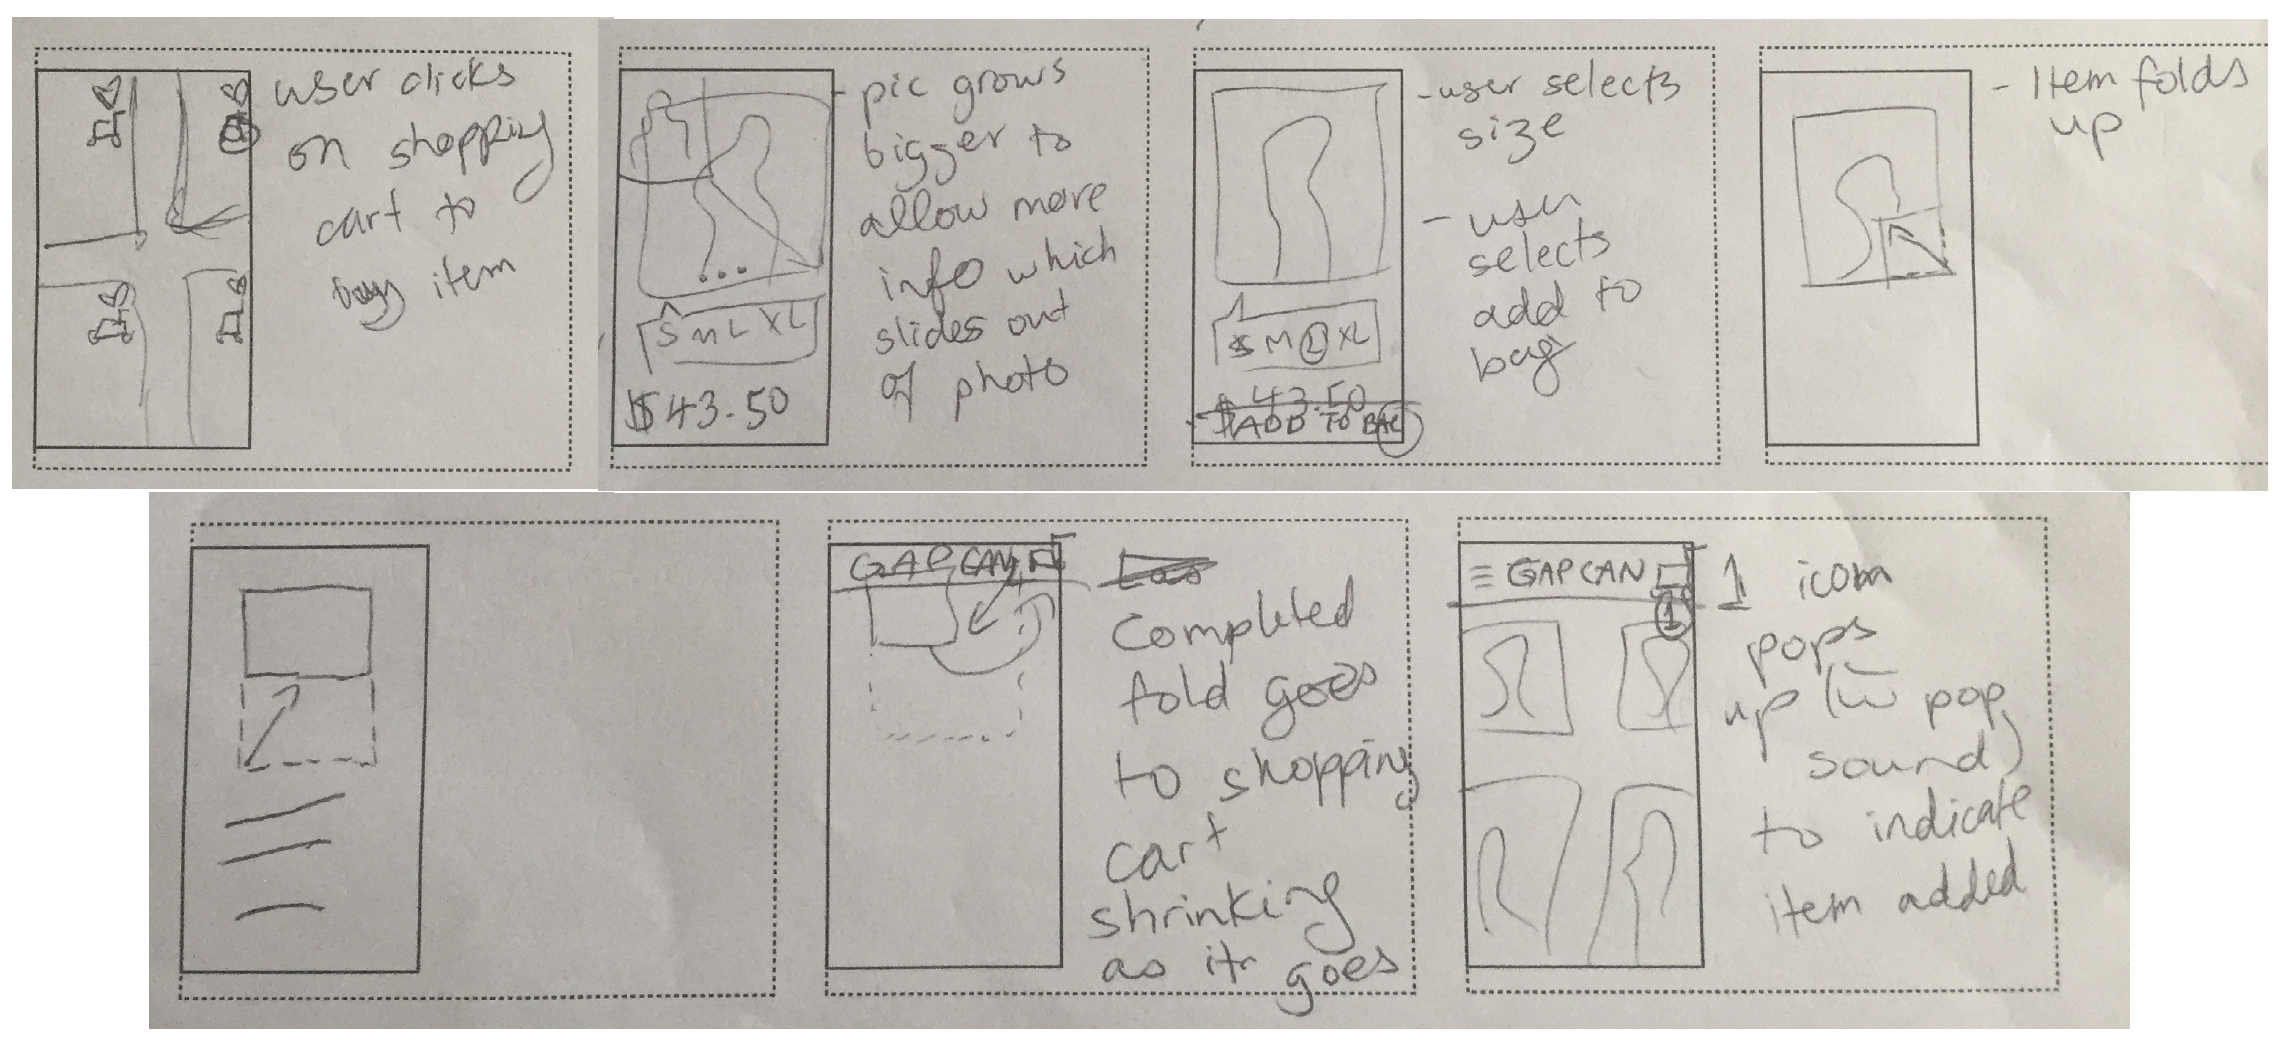 user clicks
on shopping
cart to
buy item
- pic grows
bigger to
allow more
info which
slides out
of photo
S M L XL
$43.50
- user selects
size
- user
selects
add to
bag
S M L XL
$43.50
ADD TO BAG
- Item folds
up
GAP CAN
Completed
fold goes
to shopping
cart
shrinking
as it goes
GAP CAN
1
1 icon
pops
up (w pop
sound)
to indicate
item added